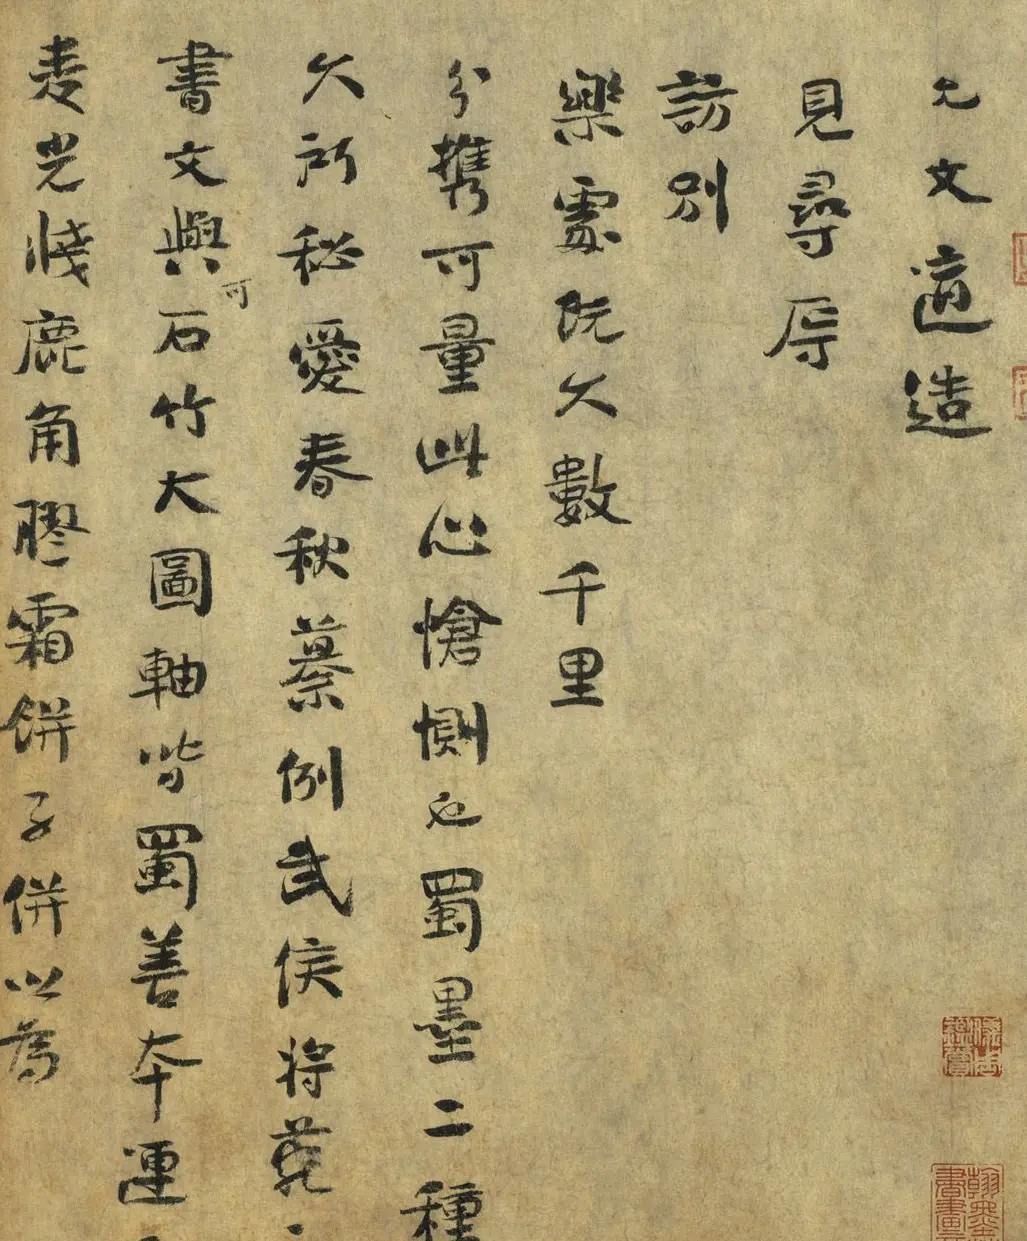 允文適造
見尋辱
訪別
樂處既久數千里
分攜可量此心愴惻也蜀墨二種
久所秘愛春秋纂例武侯將苑
書文與可石竹大圖軸皆蜀善本運
麦光牋鹿角膠霜餅子併以為